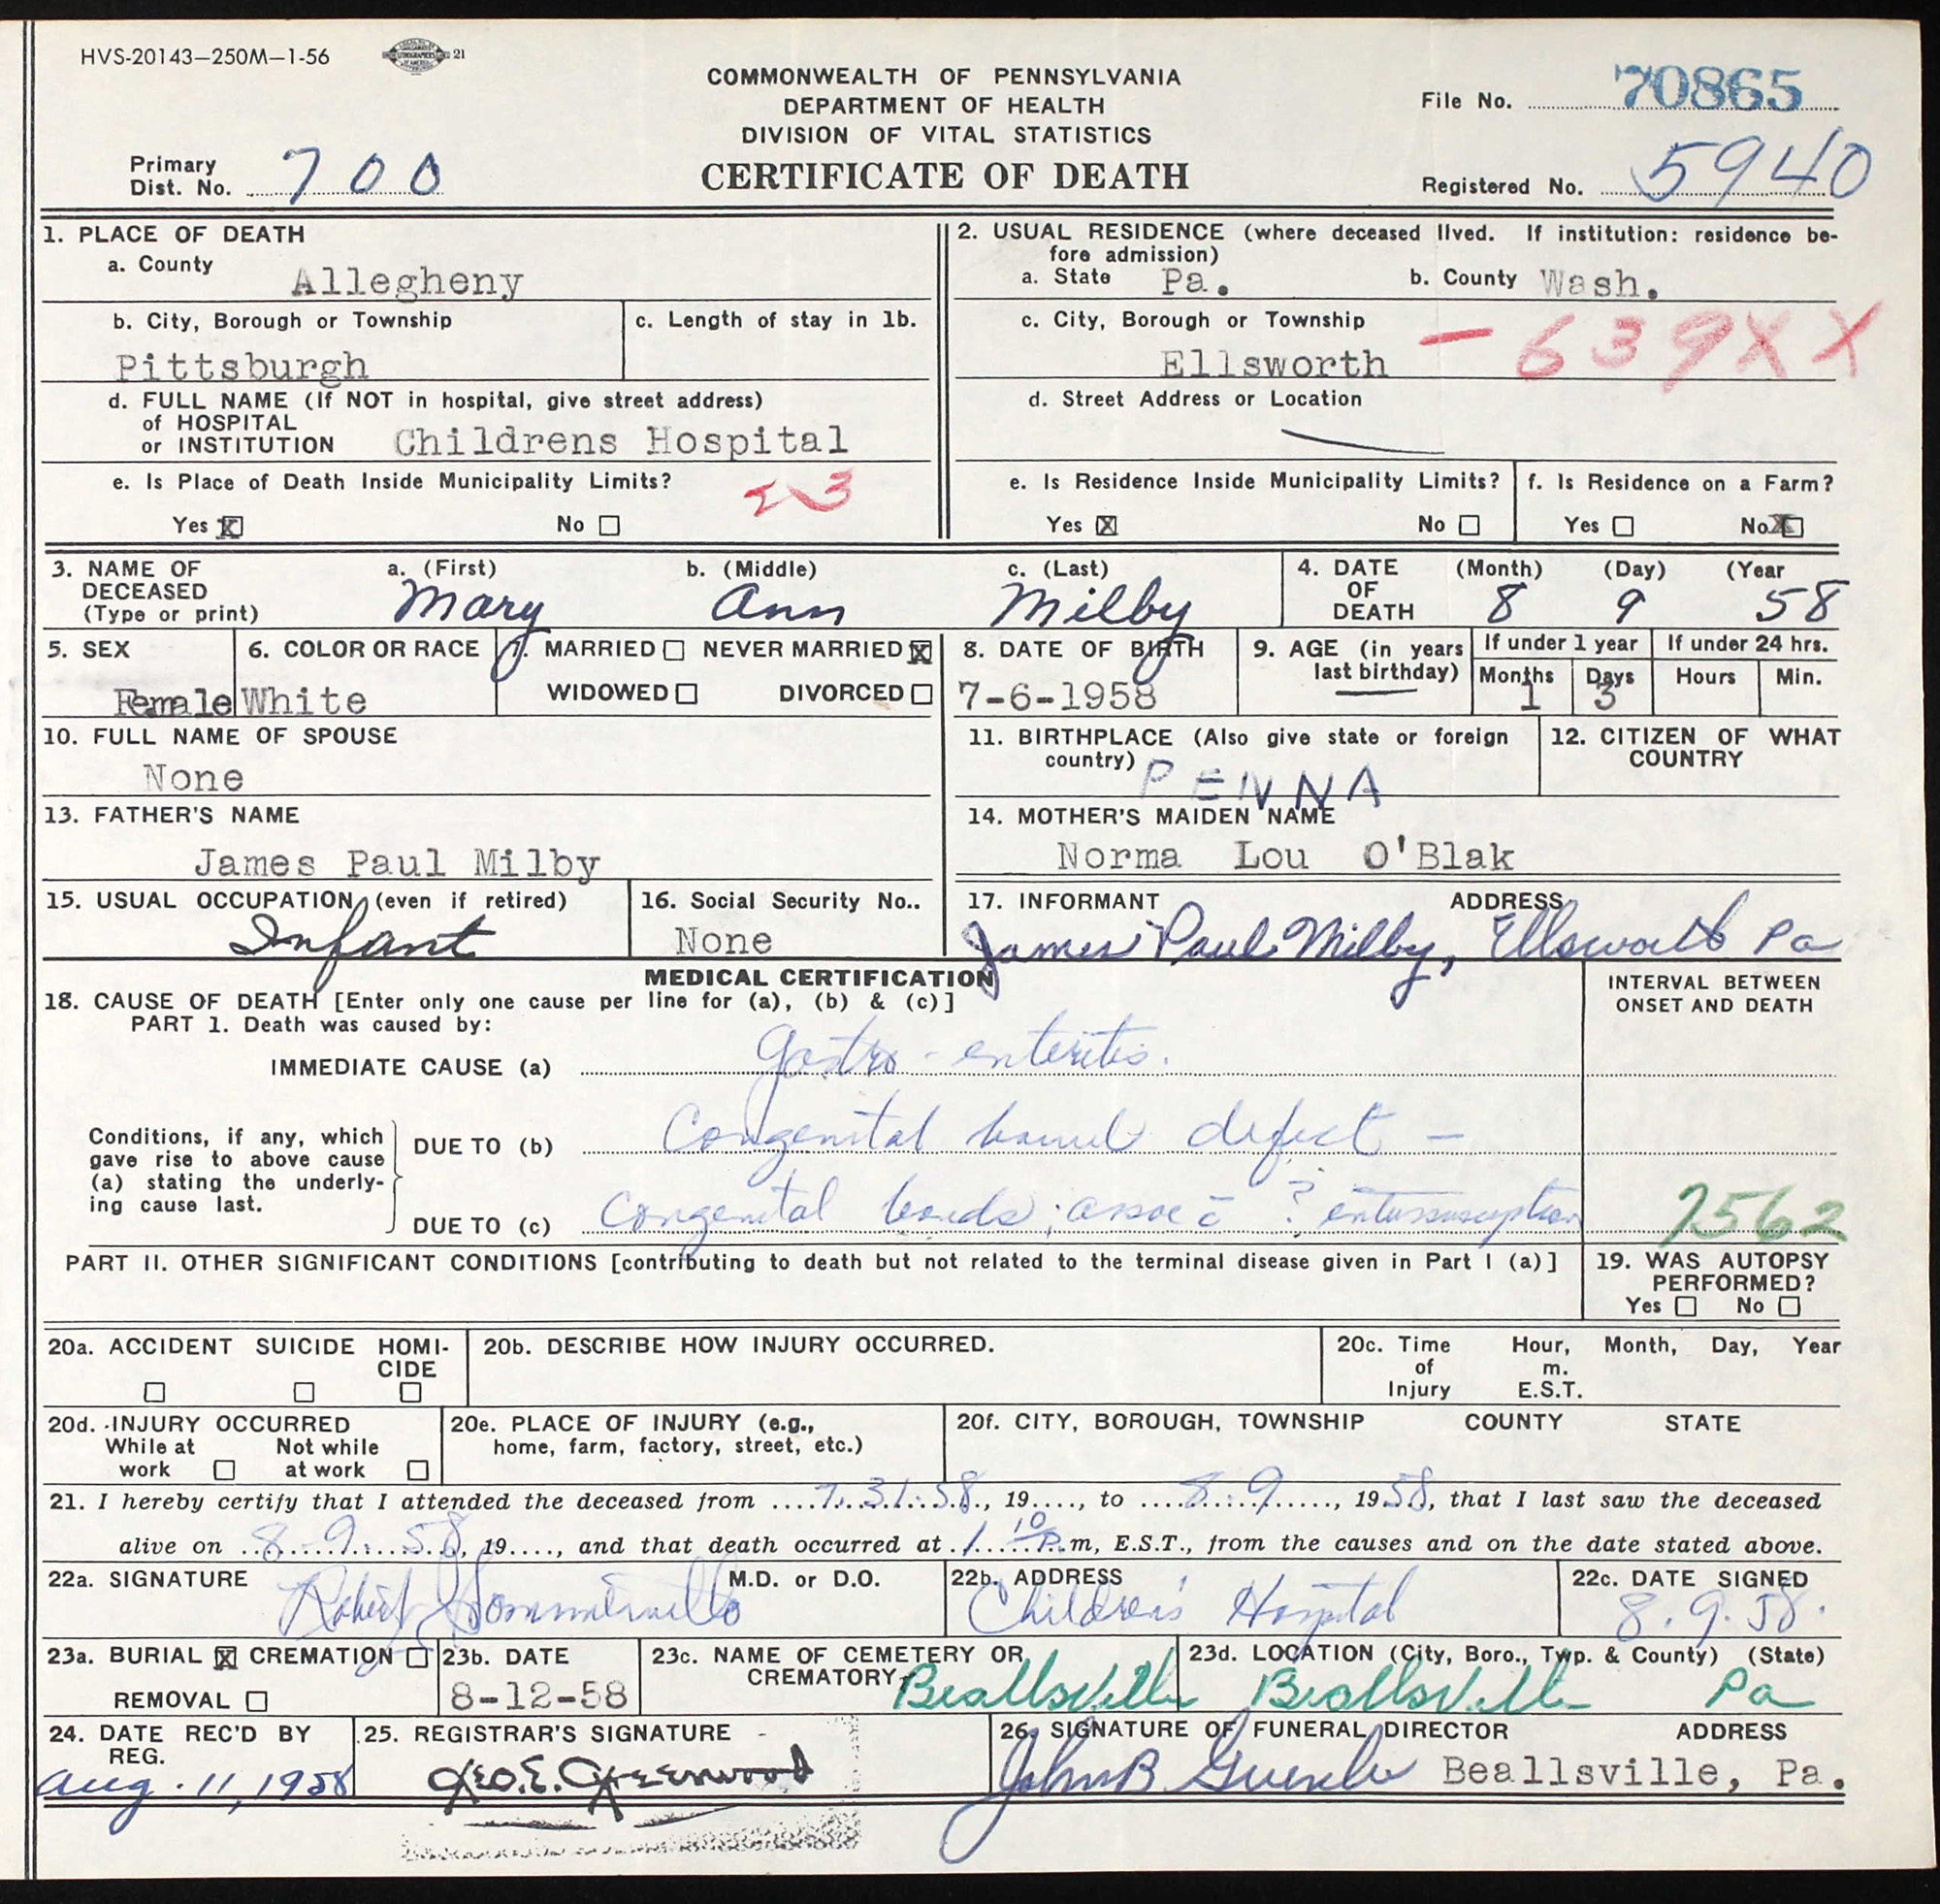 HVS-20143—250M—1-56 21
COMMONWEALTH OF PENNSYLVANIA
DEPARTMENT OF HEALTH
DIVISION OF VITAL STATISTICS
CERTIFICATE OF DEATH
File No. 70865
Primary
Dist. No. 700
Registered No. 5940
1. PLACE OF DEATH
a. County
Allegheny
b. City, Borough or Township
Pittsburgh
c. Length of stay in 1b.
d. FULL NAME (If NOT in hospital, give street address)
of HOSPITAL
or INSTITUTION Childrens Hospital
e. Is Place of Death Inside Municipality Limits?
Yes X No
23
2. USUAL RESIDENCE (where deceased lived. If institution: residence be-
fore admission)
a. State Pa. b. County Wash.
c. City, Borough or Township
Ellsworth — 639XX
d. Street Address or Location
e. Is Residence Inside Municipality Limits?
Yes X No
f. Is Residence on a Farm?
Yes No X
3. NAME OF
DECEASED
(Type or print)
a. (First) b. (Middle) c. (Last)
Mary Ann Milby
4. DATE
OF
DEATH
(Month) (Day) (Year
8 9 58
5. SEX
Female
6. COLOR OR RACE
White
7. MARRIED NEVER MARRIED X
WIDOWED DIVORCED
8. DATE OF BIRTH
7-6-1958
9. AGE (in years
last birthday)
If under 1 year
Months Days
1 3
If under 24 hrs.
Hours Min.
10. FULL NAME OF SPOUSE
None
11. BIRTHPLACE (Also give state or foreign
country)
PENNA
12. CITIZEN OF WHAT
COUNTRY
13. FATHER'S NAME
James Paul Milby
14. MOTHER'S MAIDEN NAME
Norma Lou O'Blak
15. USUAL OCCUPATION (even if retired)
Infant
16. Social Security No..
None
17. INFORMANT ADDRESS
James Paul Milby, Ellsworth Pa
MEDICAL CERTIFICATION
18. CAUSE OF DEATH [Enter only one cause per line for (a), (b) & (c)]
PART 1. Death was caused by:
INTERVAL BETWEEN
ONSET AND DEATH
IMMEDIATE CAUSE (a) Gastro-enteritis.
Conditions, if any, which
gave rise to above cause
(a) stating the underly-
ing cause last.
DUE TO (b) Congenital bowel defect —
DUE TO (c) Congenital bands; assoc c̄ ? intussusception
7562
PART II. OTHER SIGNIFICANT CONDITIONS [contributing to death but not related to the terminal disease given in Part I (a)]
19. WAS AUTOPSY
PERFORMED?
Yes No
20a. ACCIDENT SUICIDE HOMI-
CIDE
20b. DESCRIBE HOW INJURY OCCURRED.
20c. Time
of
Injury
Hour, Month, Day, Year
m.
E.S.T.
20d. INJURY OCCURRED
While at
work
Not while
at work
20e. PLACE OF INJURY (e.g.,
home, farm, factory, street, etc.)
20f. CITY, BOROUGH, TOWNSHIP COUNTY STATE
21. I hereby certify that I attended the deceased from 7.31.58, 19...., to 8.9, 1958, that I last saw the deceased
alive on 8-9-58, 19...., and that death occurred at 1 10 P.m, E.S.T., from the causes and on the date stated above.
22a. SIGNATURE M.D. or D.O.
Robert
22b. ADDRESS
Children's Hospital
22c. DATE SIGNED
8.9.58.
23a. BURIAL X CREMATION
REMOVAL
23b. DATE
8-12-58
23c. NAME OF CEMETERY OR
CREMATORY
Beallsville
23d. LOCATION (City, Boro., Twp. & County) (State)
Beallsville Pa
24. DATE REC'D BY
REG.
Aug. 11, 1958
25. REGISTRAR'S SIGNATURE
Geo. E. Greenwood
26. SIGNATURE OF FUNERAL DIRECTOR ADDRESS
John B Beallsville, Pa.